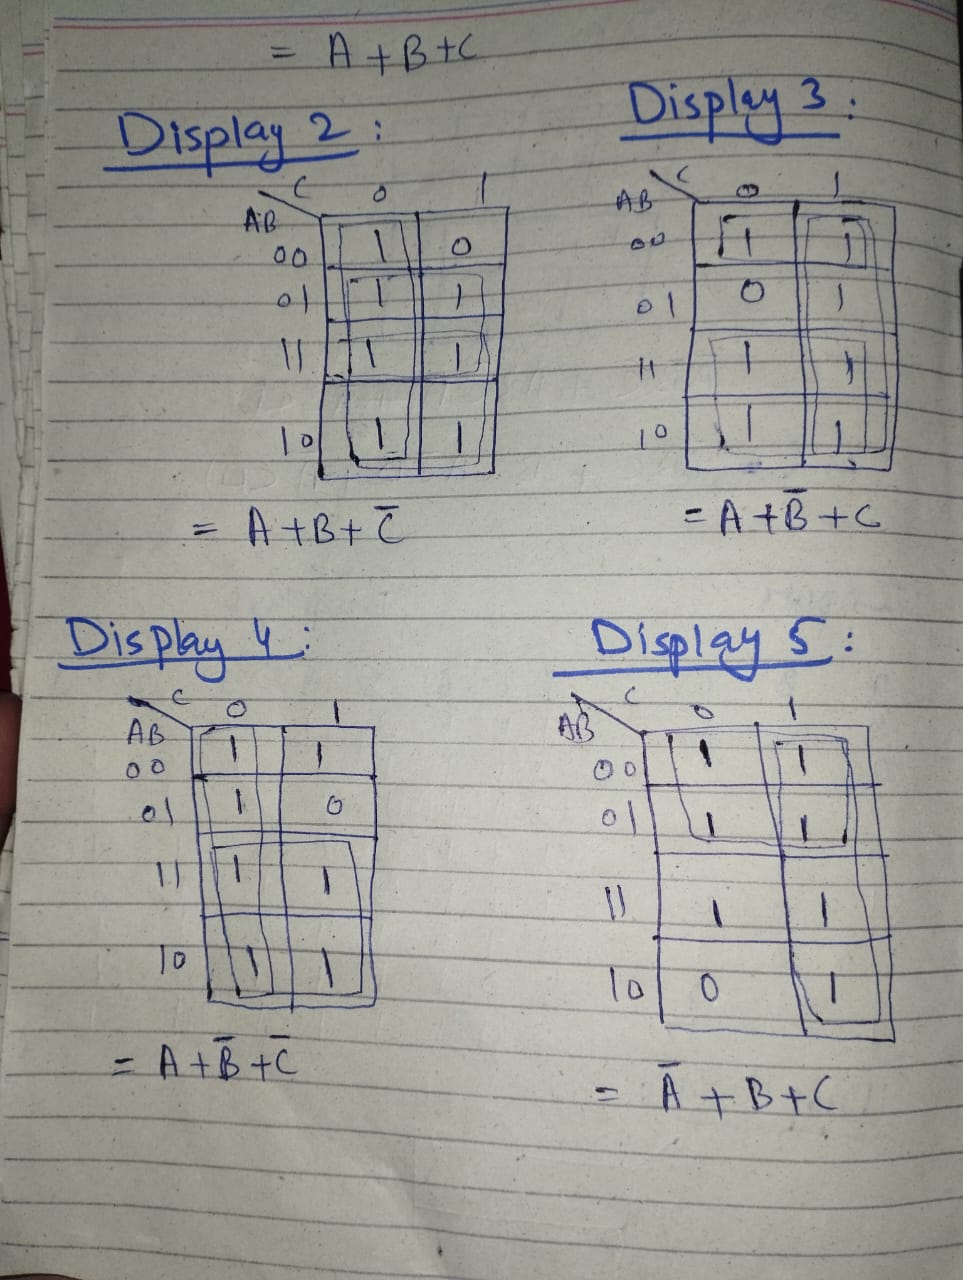 = A + B + C
Display 2 :
C 0 1
AB
00 1 0
01 1 1
11 1 1
10 1 1
= A + B + C̅
Display 3 :
C 0 1
AB
00 1 1
01 0 1
11 1 1
10 1 1
= A + B̅ + C
Display 4 :
C 0 1
AB
00 1 1
01 1 0
11 1 1
10 1 1
= A + B̅ + C̅
Display 5 :
C 0 1
AB
00 1 1
01 1 1
11 1 1
10 0 1
= A̅ + B + C